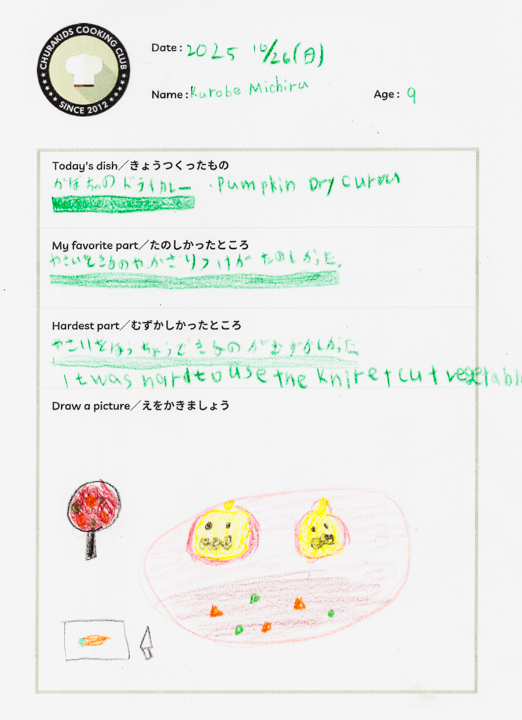 CHURAKIDS COOKING CLUB
SINCE 2012
Date : 2025 10/26(日)
Name : Kurobe Michiru
Age : 9
Today's dish／きょうつくったもの
かぼちゃのドライカレー ・Pumpkin Dry Curry
My favorite part／たのしかったところ
やさいをきるのや、かざりつけが たのしかった。
Hardest part／むずかしかったところ
やさいをほうちょうできるのがむずかしかった
It was hard to use the knife t cut vegetable
Draw a picture／えをかきましょう